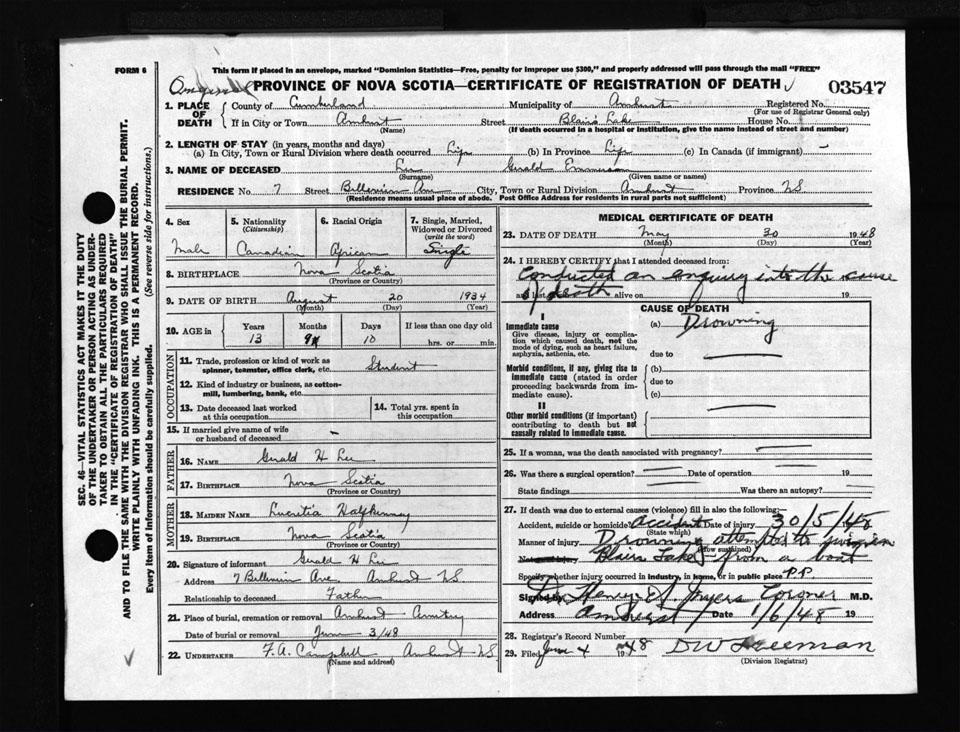 FORM 6
This form if placed in an envelope, marked "Dominion Statistics—Free, penalty for improper use $300," and properly addressed will pass through the mail "FREE"
PROVINCE OF NOVA SCOTIA—CERTIFICATE OF REGISTRATION OF DEATH
03547
1. PLACE OF DEATH
County of Cumberland Municipality of Amherst Registered No.
(For use of Registrar General only)
If in City or Town Amherst Street Blair's Lake House No.
(Name) (If death occurred in a hospital or institution, give the name instead of street and number)
2. LENGTH OF STAY (in years, months and days)
(a) In City, Town or Rural Division where death occurred Life (b) In Province Life (c) In Canada (if immigrant) —
3. NAME OF DECEASED Lee Gerald Emmerson
(Surname) (Given name or names)
RESIDENCE No. 7 Street Ave City, Town or Rural Division Amherst Province NS
(Residence means usual place of abode. Post Office Address for residents in rural parts not sufficient)
4. Sex
Male
5. Nationality
(Citizenship)
Canadian
6. Racial Origin
African
7. Single, Married, Widowed or Divorced
(write the word)
Single
8. BIRTHPLACE Nova Scotia
(Province or Country)
9. DATE OF BIRTH August 20 1934
(Month) (Day) (Year)
10. AGE in
Years Months Days If less than one day old
13 9 10 hrs. or min.
OCCUPATION
11. Trade, profession or kind of work as spinner, teamster, office clerk, etc. Student
12. Kind of industry or business, as cotton-mill, lumbering, bank, etc.
13. Date deceased last worked at this occupation
14. Total yrs. spent in this occupation
15. If married give name of wife or husband of deceased —
FATHER
16. NAME Gerald H Lee
17. BIRTHPLACE Nova Scotia
(Province or Country)
MOTHER
18. MAIDEN NAME Lucretia Halfkenny
19. BIRTHPLACE Nova Scotia
(Province or Country)
20. Signature of informant Gerald H Lee
Address 7 Ave Amherst NS
Relationship to deceased Father
21. Place of burial, cremation or removal Amherst Cemetery
Date of burial or removal June 3/48
22. UNDERTAKER F.A. Campbell Amherst NS
(Name and address)
MEDICAL CERTIFICATE OF DEATH
23. DATE OF DEATH May 30 1948
(Month) (Day) (Year)
24. I HEREBY CERTIFY that I attended deceased from:
Conducted an enquiry into the cause
of death
and last alive on 19
CAUSE OF DEATH
I
Immediate cause
Give disease, injury or complication which caused death, not the mode of dying, such as heart failure, asphyxia, asthenia, etc.
(a) Drowning
due to
Morbid conditions, if any, giving rise to immediate cause (stated in order proceeding backwards from immediate cause).
(b)
due to
(c)
II
Other morbid conditions (if important) contributing to death but not causally related to immediate cause.
25. If a woman, was the death associated with pregnancy?
26. Was there a surgical operation? Date of operation 19
State findings Was there an autopsy?
27. If death was due to external causes (violence) fill in also the following:—
Accident, suicide or homicide? accident Date of injury 30/5/48
(State which)
Manner of injury Drowning attempts to swim in
(How sustained)
Nature of injury Blairs Lake from a boat
Specify whether injury occurred in industry, in home, or in public place P.P.
Signed by Dr. Henry Myers Coroner M.D.
Address Amherst Date 1/6/48 19
28. Registrar's Record Number
29. Filed June 4 1948 DW Freeman
(Division Registrar)
SEC. 46—VITAL STATISTICS ACT MAKES IT THE DUTY OF THE UNDERTAKER OR PERSON ACTING AS UNDERTAKER TO OBTAIN ALL THE PARTICULARS REQUIRED IN THE "CERTIFICATE OF REGISTRATION OF DEATH" AND TO FILE THE SAME WITH THE DIVISION REGISTRAR WHO SHALL ISSUE THE BURIAL PERMIT.
WRITE PLAINLY WITH UNFADING INK. THIS IS A PERMANENT RECORD.
Every item of information should be carefully supplied. (See reverse side for instructions.)